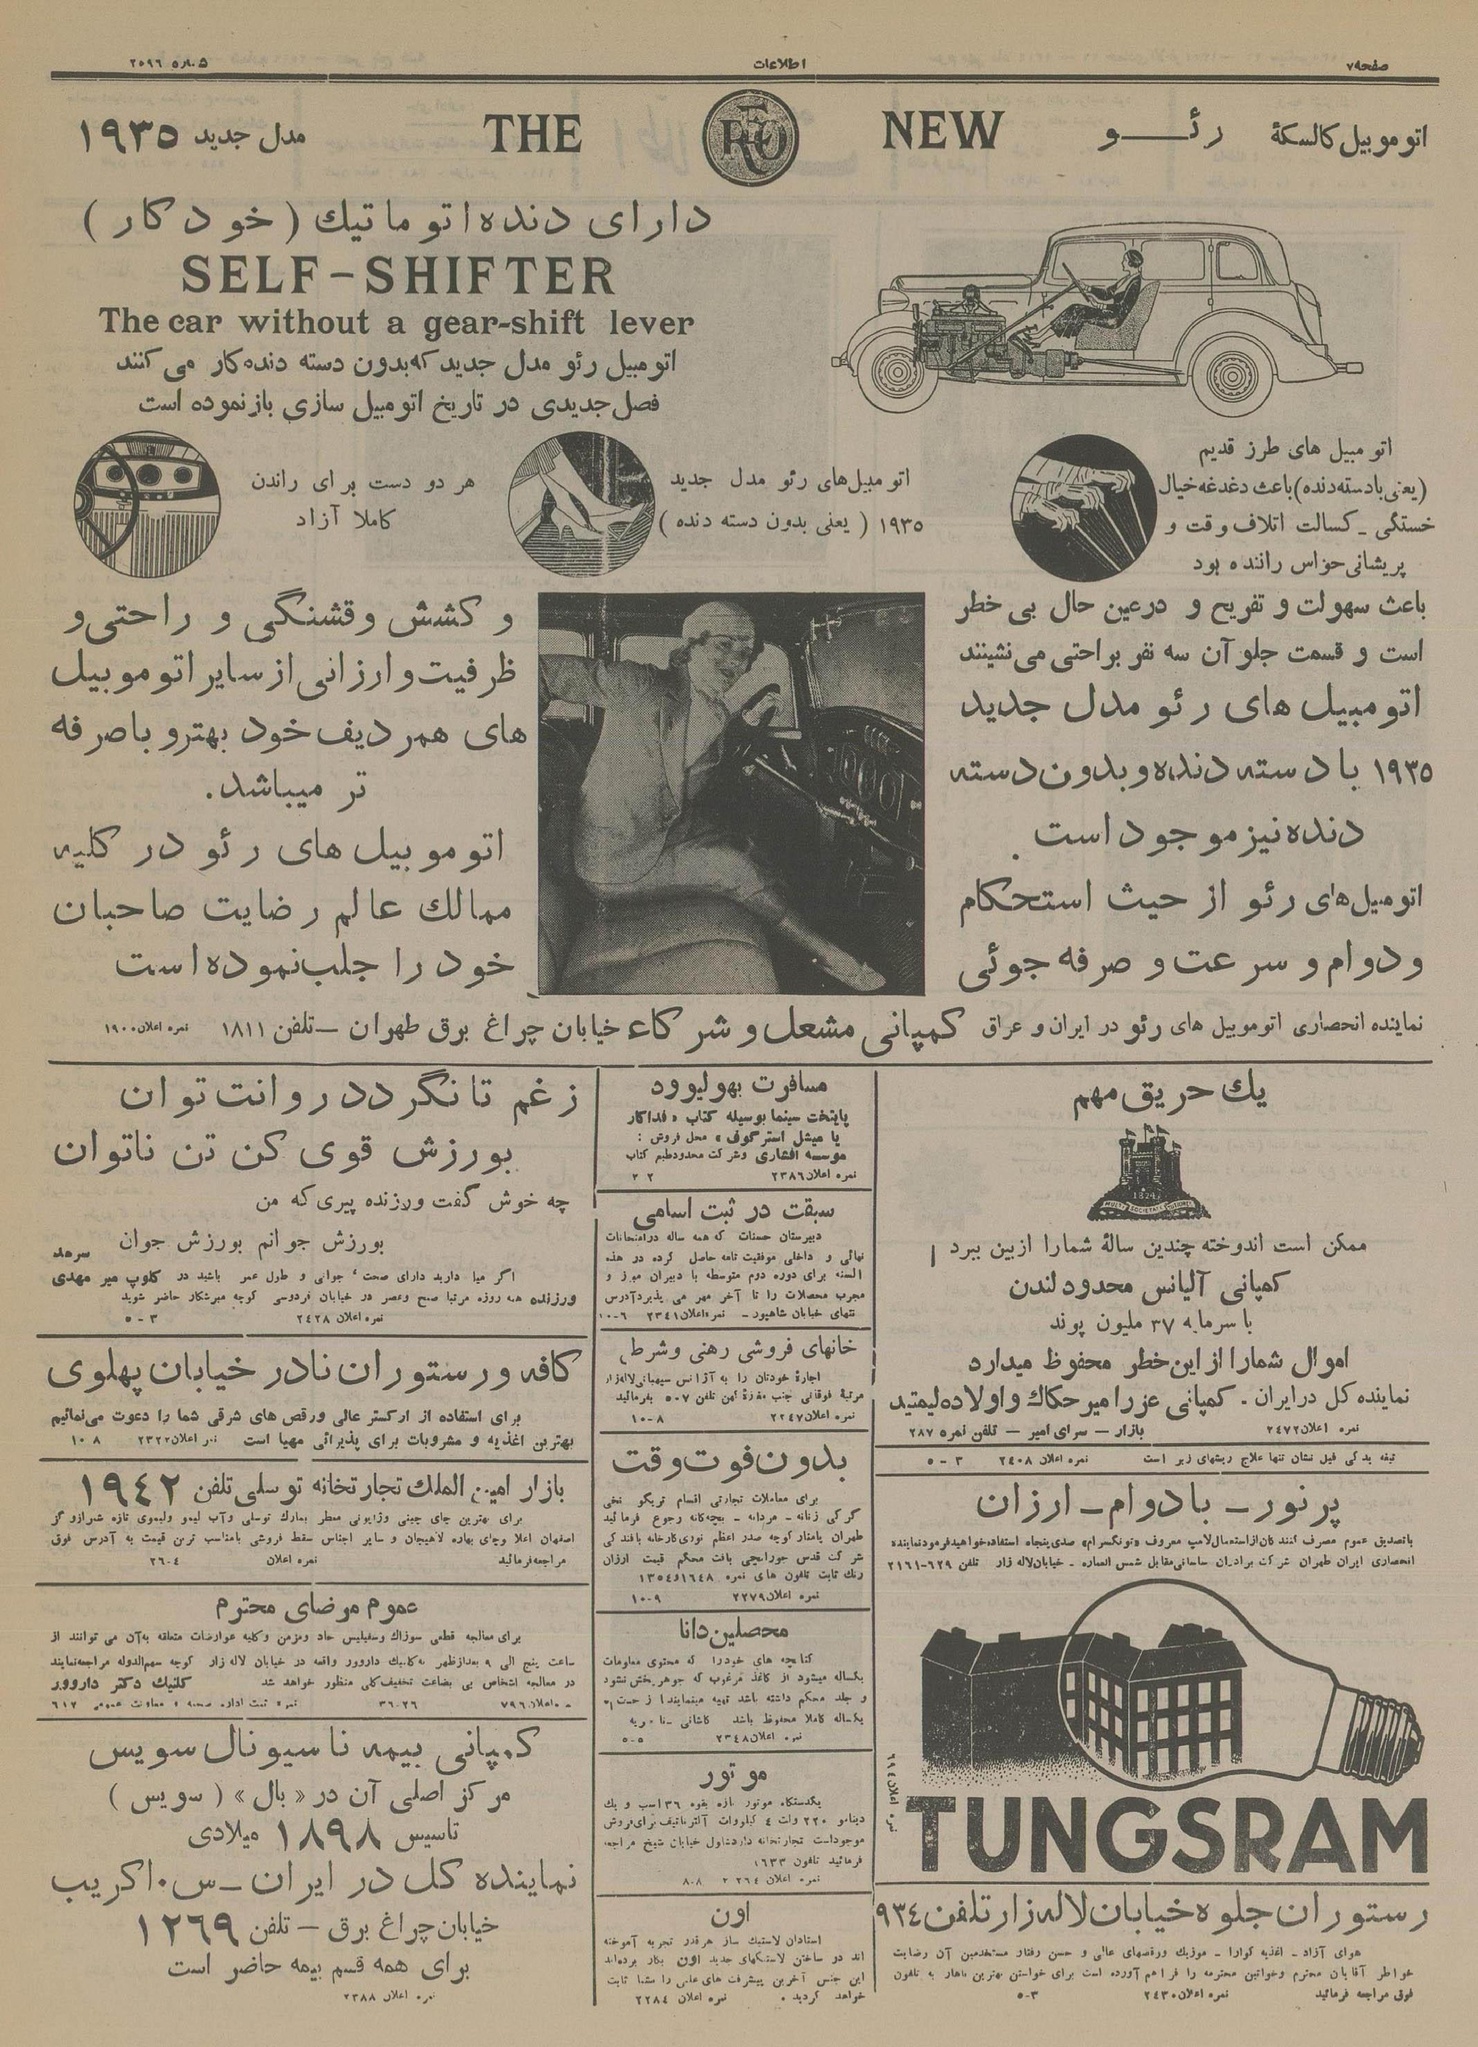 صفحه ۷
اطلاعات
شماره ۲۵۹۶
اتوموبیل کالسکهٔ رئو
THE REO NEW
مدل جدید ۱۹۳۵
دارای دنده اتوماتیك (خودکار)
SELF-SHIFTER
The car without a gear-shift lever
اتومبیل رئو مدل جدید که بدون دسته دنده کار می کنند
فصل جدیدی در تاریخ اتومبیل سازی باز نموده است
اتومبیل های طرز قدیم
(یعنی با دسته دنده) باعث دغدغه خیال
خستگی ـ کسالت اتلاف وقت و
پریشانی حواس راننده بود
اتومبیل های رئو مدل جدید
۱۹۳۵ (یعنی بدون دسته دنده)
هر دو دست برای راندن
کاملا آزاد
باعث سهولت و تفریح و درعین حال بی خطر
است و قسمت جلو آن سه نفر براحتی می نشینند
اتومبیل های رئو مدل جدید
۱۹۳۵ با دسته دنده و بدون دسته
دنده نیز موجود است.
اتومبیل های رئو از حیث استحکام
و دوام و سرعت و صرفه جوئی
و کشش و قشنگی و راحتی و
ظرفیت و ارزانی از سایر اتوموبیل
های همردیف خود بهتر و با صرفه
تر میباشد.
اتوموبیل های رئو در کلیه
ممالك عالم رضایت صاحبان
خود را جلب نموده است
نماینده انحصاری اتوموبیل های رئو در ایران و عراق کمپانی مشعل و شرکاء خیابان چراغ برق طهران ـ تلفن ۱۸۱۱ نمره اعلان ۱۹۰۰
یك حریق مهم
1824
ممکن است اندوخته چندین سالهٔ شما را از بین ببرد
کمپانی آلیانس محدود لندن
با سرمایه ۳۷ ملیون پوند
اموال شما را از این خطر محفوظ میدارد
نماینده کل در ایران . کمپانی عزرا میر حکاك و اولاده لیمتید
بازار ـ سرای امیر ـ تلفن نمره ۲۸۷
نمره اعلان ۲۴۷۲
تیغه یدکی فیل نشان تنها علاج ریشهای زبر است نمره اعلان ۲۴۰۸ ۳ـ۵
پر نور ـ با دوام ـ ارزان
با تصدیق عموم مصرف کنندکان از استعمال لامپ معروف «تونگسرام» صدی پنجاه استفاده خواهید فرمود نماینده
انحصاری ایران طهران شرکت برادران ساسانی مقابل شمس العماره ـ خیابان لاله زار تلفن ۶۲۹ـ۲۱۶۱
نمره اعلان ۶۹۴
TUNGSRAM
رستوران جلوه خیابان لاله زار تلفن ۹۳۴
هوای آزاد ـ اغذیه گوارا ـ موزیك ورقصهای عالی و حسن رفتار مستخدمین آن رضایت
خواطر آقایان محترم وخوانین محترمه را فراهم آورده است برای خواستن بهترین ناهار به تلفون
فوق مراجعه فرمائید نمره اعلان ۲۴۳۰ ۳ـ۵
مسافرت بهولیوود
پایتخت سینما بوسیله کتاب «فداکار
یا میشل استرگوف» محل فروش:
موسسه افشاری وشرکت محدود طبع کتاب
نمره اعلان ۲۳۸۶ ۲ ۲
سبقت در ثبت اسامی
دبیرستان حسنات که همه ساله در امتحانات
نهائی و داخلی موفقیت تامه حاصل کرده در هذه
السنه برای دوره دوم متوسطه با دبیران مبرز و
مجرب محصلات را تا آخر مهر می پذیرد آدرس
نتهای خیابان شاهپور ـ نمره اعلان ۲۳۴۱ ۶ـ۱۰
خانهای فروشی رهنی وشرطی
اجارهٔ خودتان را به آژانس سپهبانی لاله زار
مرتبهٔ فوقانی جنب تلفن ۵۰۷ بفرمائید
نمره اعلان ۲۲۴۷ ۸ـ۱۰
بدون فوت وقت
برای معاملات تجارتی اقسام تریکو نخی
گرکی زنانه ـ مردانه ـ بچه گانه رجوع فرمائید
طهران پامنار کوچه صدر اعظم نودی کارخانه بافندکی
شرکت قدس جورابچی بافت محکم قیمت ارزان
رنك ثابت تلفون های نمره ۱۶۴۸و۱۳۵۴
نمره اعلان ۲۲۷۹ ۹ـ۱۰
محصلین دانا
کتابچه های خود را که محتوی معلومات
یکساله میشود از کاغذ مرغوب که جوهر پخش نشود
و جلد محکم داشته باشد تهیه مینمایند از زحمت
یکساله کاملا محفوظ باشد کاشانی
نمره اعلان ۲۳۴۸ ۵ـ۵
موتور
یکدستگاه موتور تازه بقوه ۳۶ اسب و یك
دینامو ۲۲۰ وات ۴ کیلووات آلترناتیف برای فروش
موجود است تجارتخانه خیابان شیخ مراجعه
فرمائید تلفون ۱۶۳۳
نمره اعلان ۲۲۶۴ ۸ـ۸
اون
استادان لاستیك ساز هرقدر تجربه آموخته
اند دو ساختن لاستیکهای جدید اون بکار برده اند
این جنس آخرین پیشرفت های علمی را بشما ثابت
خواهد کردید. نمره اعلان ۲۲۸۴
ز غم تا نگردد روانت توان
بورزش قوی کن تن ناتوان
چه خوش گفت ورزنده پیری که من
بورزش جوانم بورزش جوان
سرمد
اگر میا دارید دارای صحت، جوانی و طول عمر باشید در کلوپ میر مهدی
ورزنده همه روزه مرتبا صبح وعصر در خیابان فردوسی کوچه میرشکار حاضر شوید
نمره اعلان ۲۴۲۸ ۳ـ۵
کافه و رستوران نادر خیابان پهلوی
برای استفاده از ارکستر عالی ورقص های شرقی شما را دعوت می نمائیم
بهترین اغذیه و مشروبات برای پذیرائی مهیا است نمره اعلان ۲۳۲۲ ۸ ۱۰
بازار امین الملك تجارتخانه توسلی تلفن ۱۹۴۲
برای بهترین چای چینی وژاپونی معطر بمارك توسلی وآب لیمو ولیموی تازه شیراز و گز
اصفهان اعلا وچای بهاره لاهیجان و سایر اجناس سقط فروشی بامناسب ترین قیمت به آدرس فوق
مراجعه فرمائید نمره اعلان ۲۶۰۴
عموم مرضای محترم
برای معالجه قطعی سوزاك وسفلیس حاد ومزمن وکلیه عوارضات متعلقه به آن می توانند از
ساعت پنج الی ۹ بعدازظهر به کلنیك داروور واقعه در خیابان لاله زار کوچه سهم الدوله مراجعه نمایند
در معالجه اشخاص بی بضاعت تخفیف کلی منظور خواهد شد کلنیك دکتر داروور
نمره اعلان ۷۹۶ ۲۶ـ۳۶ نمره ثبت اداره صحیه و معاونت عمومی ۶۱۲
کمپانی بیمه ناسیونال سویس
مرکز اصلی آن در «بال» (سویس)
تاسیس ۱۸۹۸ میلادی
نماینده کل در ایران ـ س. اکریب
خیابان چراغ برق ـ تلفن ۱۲۶۹
برای همه قسم بیمه حاضر است
نمره اعلان ۲۳۸۸